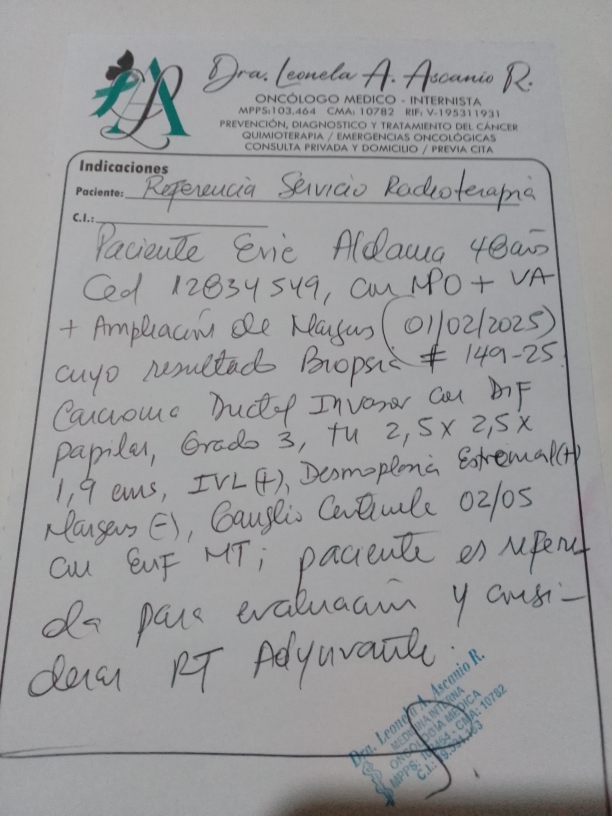 Dra. Leonela A. Ascanio R.
ONCÓLOGO MEDICO - INTERNISTA
MPPS:103.464 CMA: 10782 RIF: V-195311931
PREVENCIÓN, DIAGNOSTICO Y TRATAMIENTO DEL CÁNCER
QUIMIOTERAPIA / EMERGENCIAS ONCOLÓGICAS
CONSULTA PRIVADA Y DOMICILIO / PREVIA CITA
Indicaciones
Paciente: Referencia Servicio Radioterapia
C.I.:
Paciente Eric Aldama 48 años
Ced 12834549, con MPO + VA
+ Ampliación de Margens (01/02/2025)
cuyo resultado Biopsia # 149-25
Carcinoma Ductal Invasor con Dif
papilar, Grado 3, tu 2,5 x 2,5 x
1,9 cms, IVL (+), Desmoplasia Estromal (+)
Margens (-), Ganglio Centinela 02/05
con Enf MT; paciente es referi-
da para evaluación y consi-
derar RT Adyuvante.
Dra. Leonela A. Ascanio R.
MEDICINA INTERNA
ONCOLOGÍA MEDICA
MPPS: 103.464 - CMA: 10782